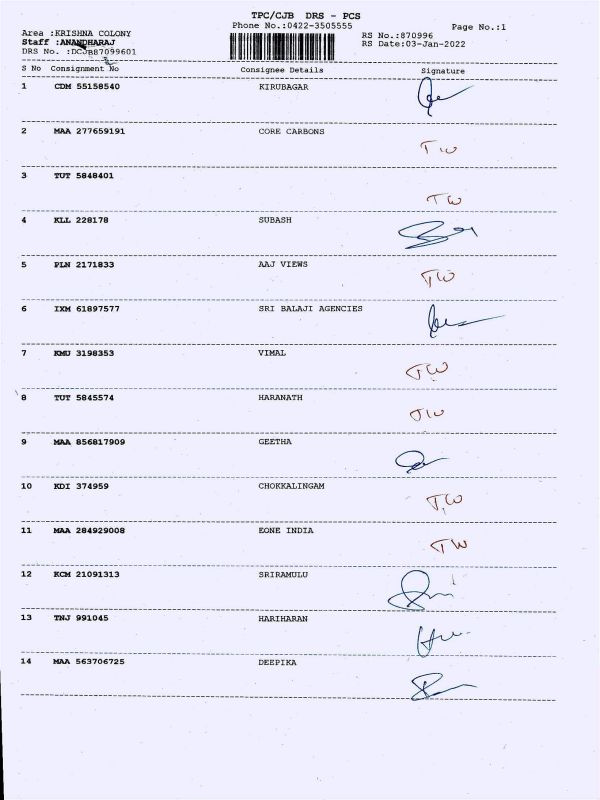 TPC/CJB DRS - PCS
Phone No.:0422-3505555
Page No.:1
Area :KRISHNA COLONY
RS No.:870996
Staff :ANANDHARAJ
RS Date:03-Jan-2022
DRS No. :DCJB87099601
S No Consignment No Consignee Details Signature
1 CDM 55158540 KIRUBAGAR
2 MAA 277659191 CORE CARBONS TW
3 TUT 5848401 TW
4 KLL 228178 SUBASH
5 PLN 2171833 AAJ VIEWS TW
6 IXM 61897577 SRI BALAJI AGENCIES
7 KMU 3198353 VIMAL TW
8 TUT 5845574 HARANATH TW
9 MAA 856817909 GEETHA
10 KDI 374959 CHOKKALINGAM TW
11 MAA 284929008 EONE INDIA TW
12 KCM 21091313 SRIRAMULU
13 TNJ 991045 HARIHARAN
14 MAA 563706725 DEEPIKA